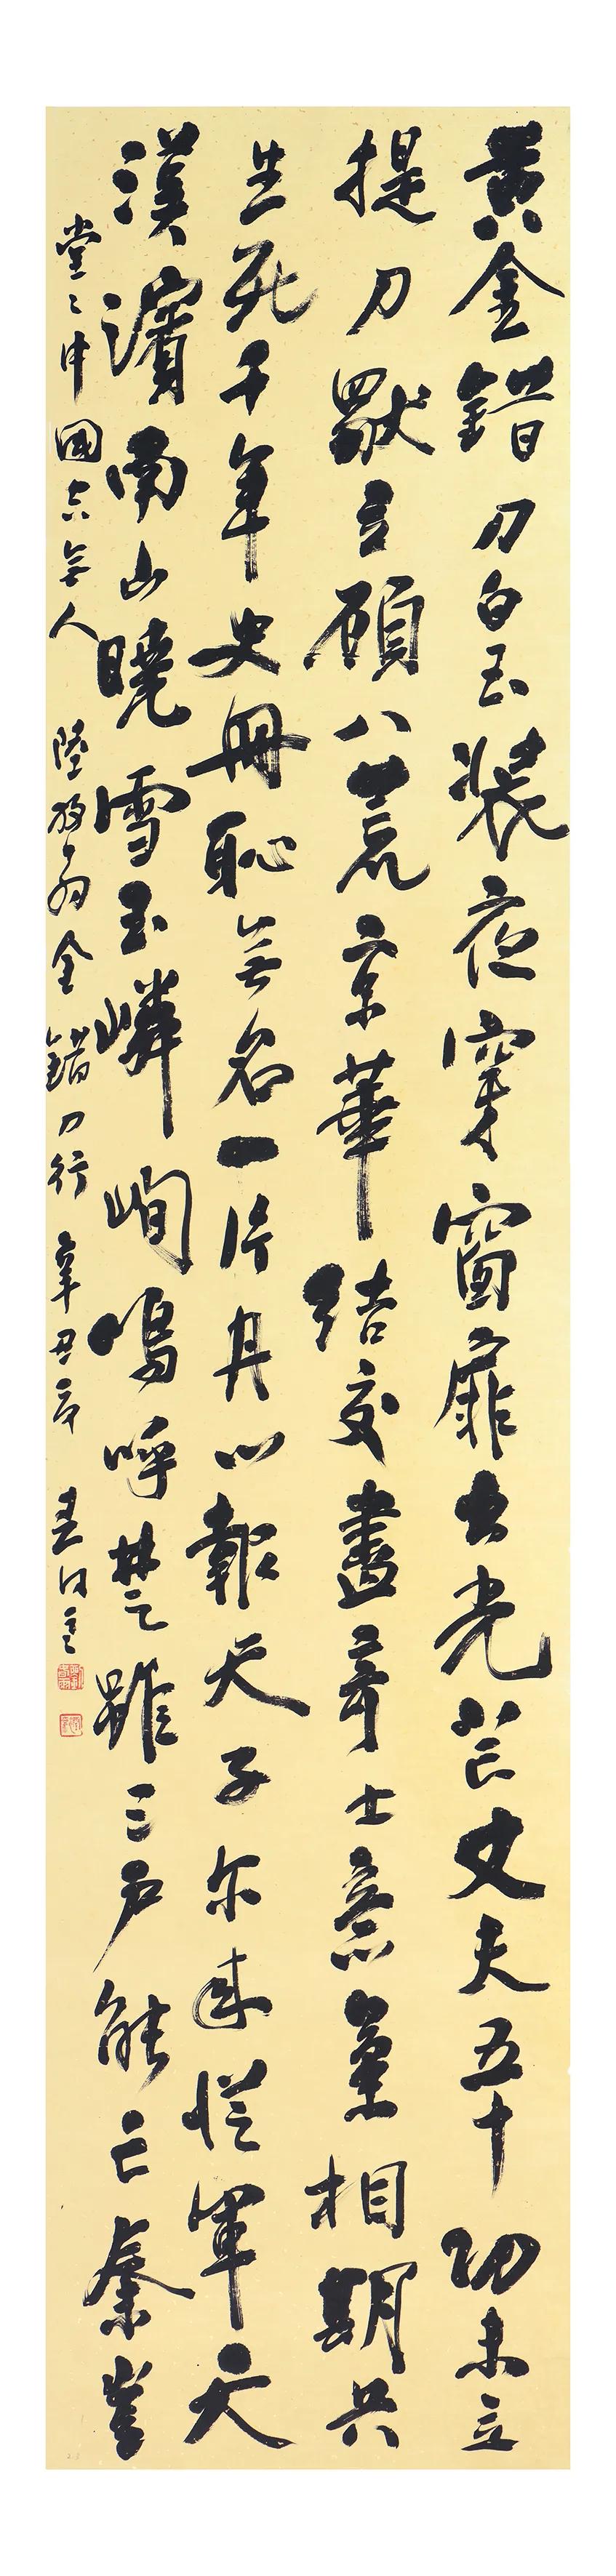 黃金錯刀白玉裝夜穿窗扉出光芒丈夫五十功未立
提刀獨立顧八荒京華結交盡奇士意氣相期共
生死千年史冊恥無名一片丹心報天子尔來從軍天
漢濱南山曉雪玉嶙峋嗚呼楚雖三戶能亡秦豈
堂〻中國空無人 陸放翁金錯刀行 辛丑